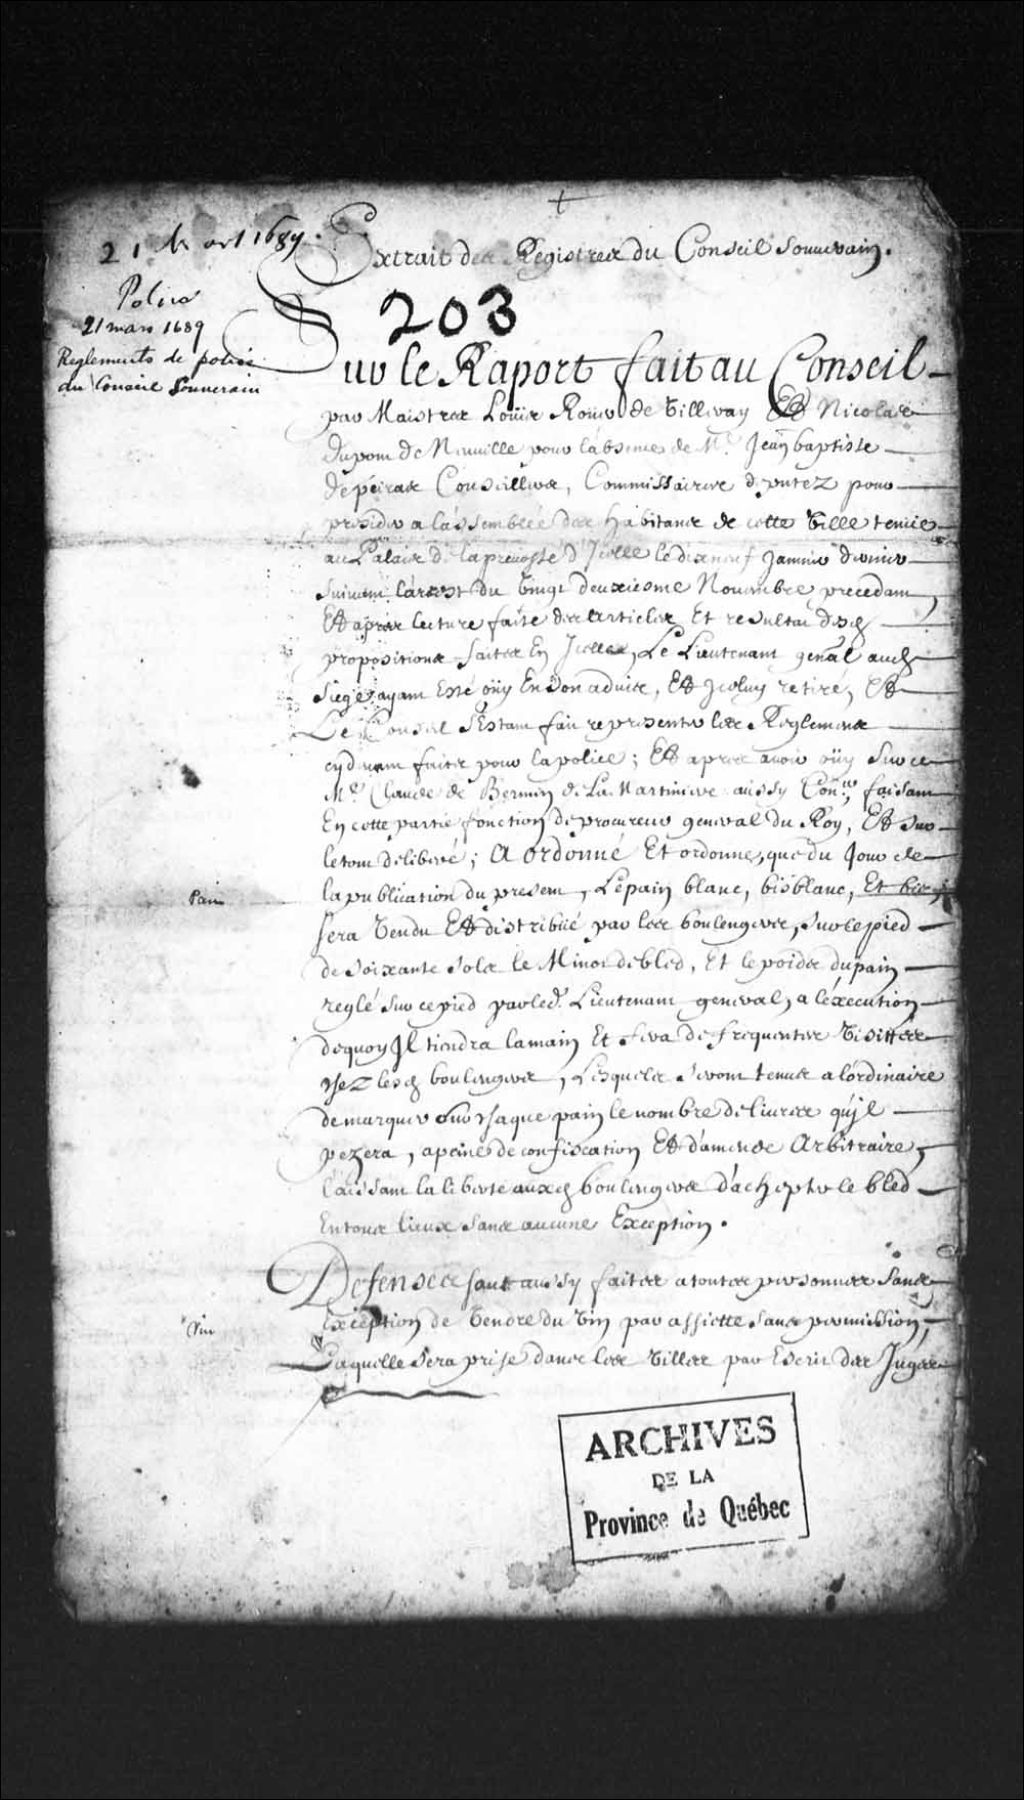 21 Mars 1689.
Extrait des Registres du Conseil Souuerain.
203
Police
21 mars 1689
Reglements de police
du Conseil Souverain
Sur le Raport fait au Conseil
par Maistres Loüis Rouer de Villeray Et Nicolas
Dupont de Neuuille pour l'absence de Mr. Jean baptiste
depeiras Conseillers, Commissaires deputez pour
presider a l'assemblée des habitans de cette Ville tenüe
au Palais de la preuosté d'Jcelle le dixneuf Januier dernier
suiuant l'arrest du Vingt deuxiesme Nouembre precedant,
Et apres lecture faite des articles Et resultat desd
propositions faites En Jcelles, Le Lieutenant genal aud
Siege ayant Esté oüy En son aduis, Et Jceluy retiré, Et
Le Conseil s'Estant fait representer les Reglemens
cydeuant faits pour la police; Et apres auoir oüy Sur ce
Mr. Claude de Bermen de La Martiniere aussy Coner. faisant
En cette partie fonction de procureur general du Roy, Et Sur
le tout deliberé; A ordonné Et ordonne, que du Jour de
la publication du present, Le pain blanc, bisblanc, Et bis,
Pain
sera Vendu Et distribüé par les boulengers, Sur le pied
de Soixante Sols le Minot de bled, Et le poids du pain
reglé Sur ce pied par led. Lieutenant general, a l'éxecution
dequoy Jl tiendra la main Et fera de frequentes Visittes
chez lesd boulengers, Lesquels seront tenus a l'ordinaire
de marquer sur chaque pain le nombre de liures qu'jl
pezera, apeine de confiscation Et d'amende Arbitraire,
laissant la liberté auxd boulengers d'achepter le bled
En tous lieux sans aucune Exception.
Defenses sont aussy faites a toutes personnes sans
Vin
Exception de Vendre du Vin par assiette sans permission,
Laquelle sera prise dans les Villes par Escrit des Juges
ARCHIVES
DE LA
Province de Québec